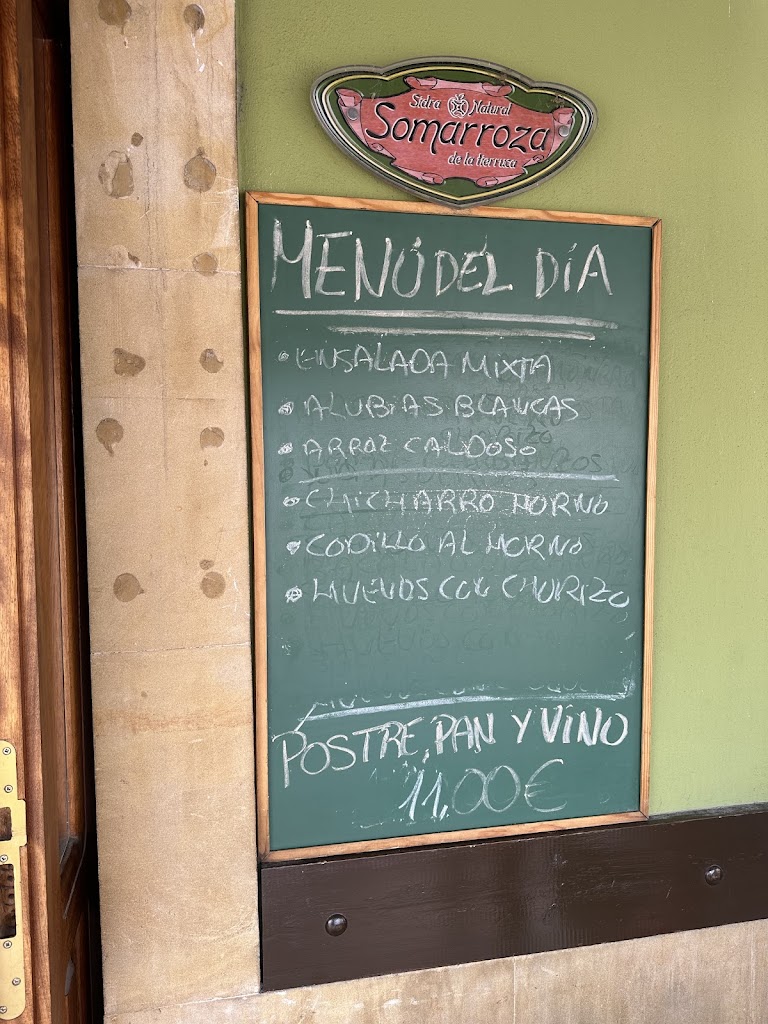 Sidra Natural
Somarroza
de la Herruza
MENÚ DEL DÍA
• ENSALADA MIXTA
• ALUBIAS BLANCAS
• ARROZ CALDOSO
• CHICHARRO HORNO
• CODILLO AL HORNO
• HUEVOS CON CHORIZO
POSTRE, PAN Y VINO
11,00€